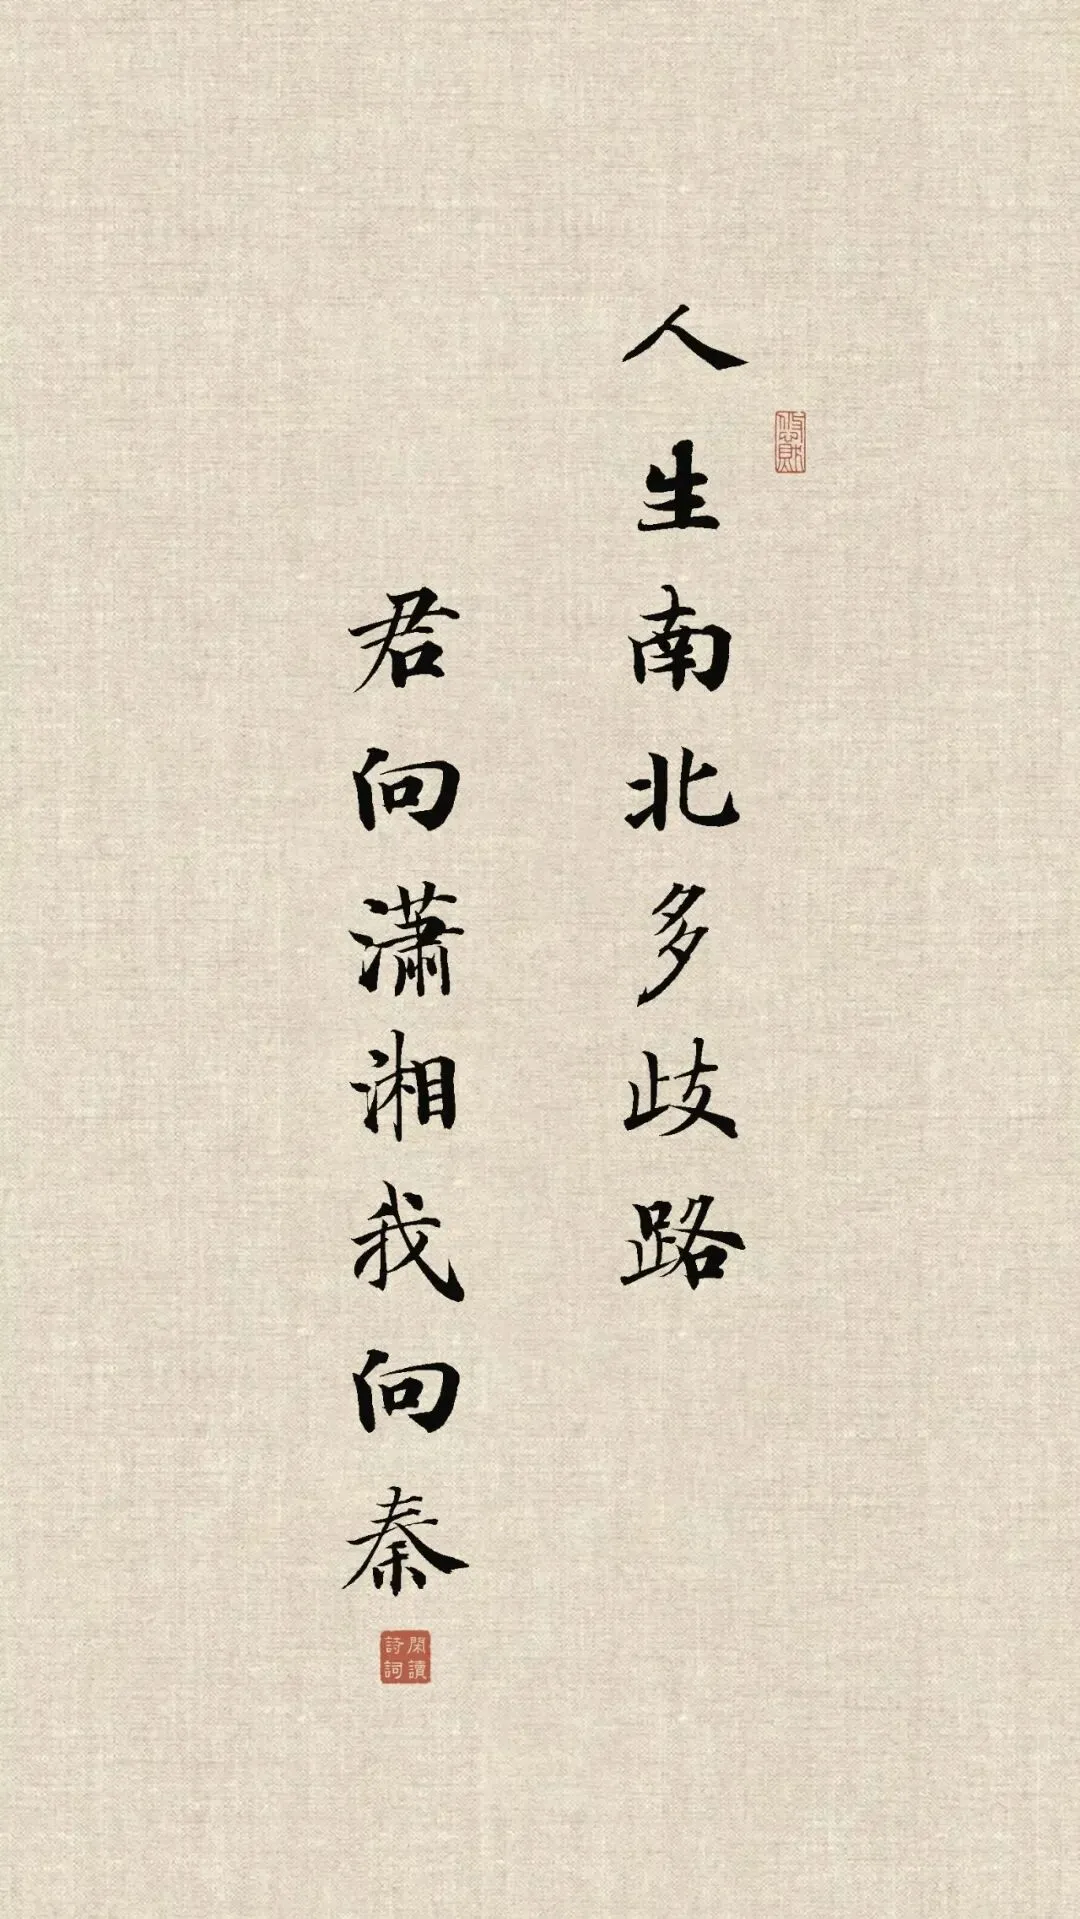 人生南北多歧路
君向潇湘我向秦
閑讀
詩詞